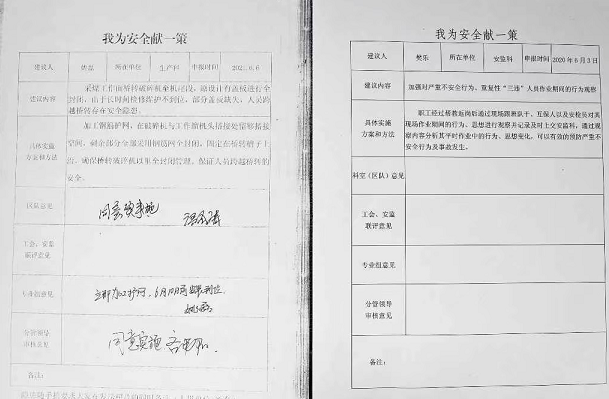 我为安全献一策
建议人
所在单位
生产科
申报时间
建议内容
采煤工作面桥转破碎机全机尾段，原设计有盖板进行全
封闭，由于长时间检修维护不到位，部分盖板缺失，人员跨
越桥转存在安全隐患。
具体实施
方案和方法
加工钢筋护网，在破碎机与工作溜机头搭接处留够搭接
空间，剩余部分全部采用钢筋网全封闭，固定在桥转槽子上
沿，确保桥转破碎机以里全封闭管理，保证人员跨越桥转的
安全。
区队意见
同意实施
工会、安监
联评意见
专业组意见
立即加工护网，6月10日前
到位
分管领导
审核意见
同意实施
备注：
我为安全献一策
建议人
所在单位
安监科
申报时间
2020年6月3日
建议内容
加强对严重不安全行为、重复性“三违”人员作业期间的行为观察
具体实施
方案和方法
职工经过帮教返岗后通过现场跟班队干、互保人以及安检员对其
现场作业期间的行为、思想进行观察并记录及时上交安监科，通过观
察内容分析其平时作业中的行为、思想变化，可以有效的预防严重不
安全行为及事故发生。
科室（区队）意见
工会、安监
联评意见
专业组意见
分管领导
审核意见
备注：